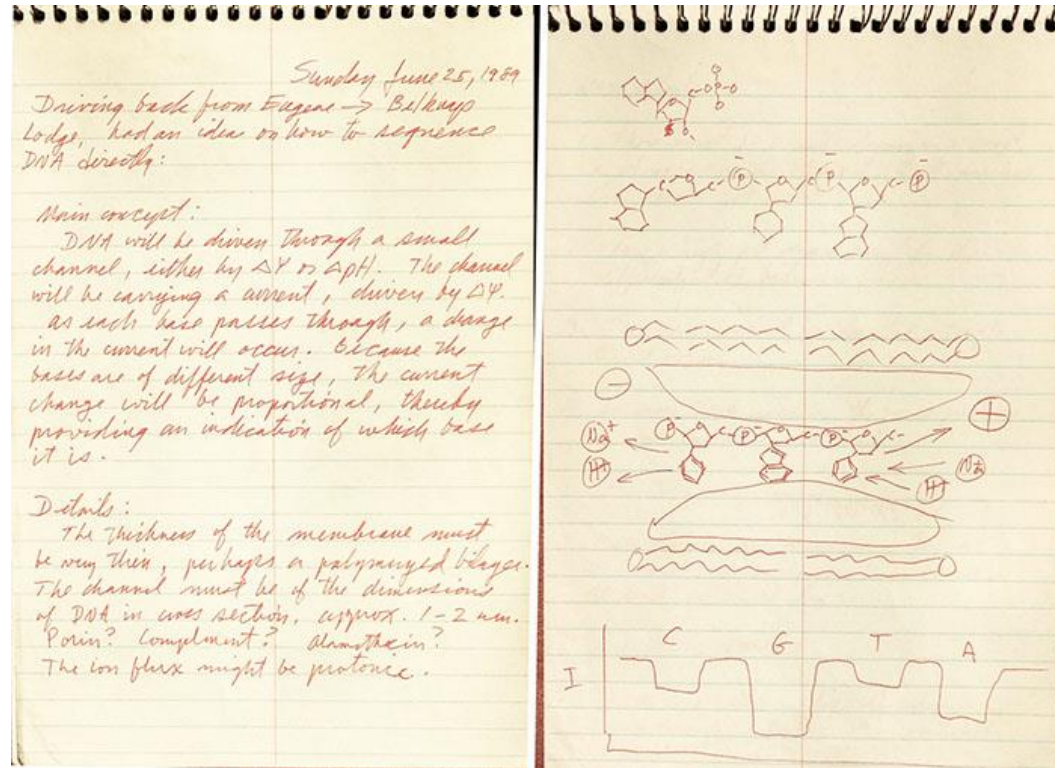 Sunday June 25, 1989
Driving back from Eugene → Belknap
Lodge, had an idea on how to sequence
DNA directly:
Main concept:
DNA will be driven through a small
channel, either by ΔΨ or ΔpH. The channel
will be carrying a current, driven by ΔΨ.
As each base passes through, a change
in the current will occur. Because the
bases are of different size, the current
change will be proportional, thereby
providing an indication of which base
it is.
Details:
The thickness of the membrane must
be very thin, perhaps a polymerized bilayer.
The channel must be of the dimensions
of DNA in cross section, approx. 1-2 nm.
Porin? Compliment? Alamethicin?
The ion flux might be protons.
O
O C-O-P-O
O
O
C O C-P O C P O C-P
- +
P O C-P O C-P O C-
Na+ Na+
H+ H+
C G T A
I